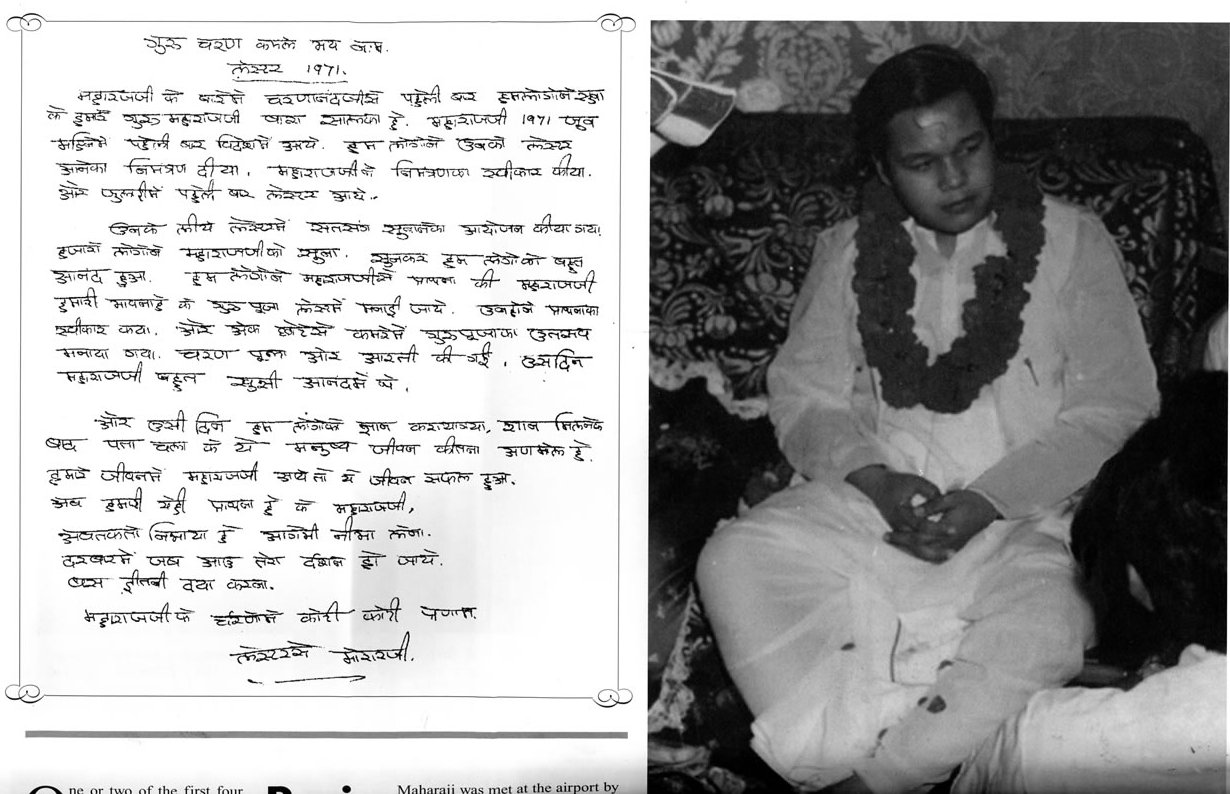 गुरु चरण कमले मय
लेस्टर 1971.
महाराजजी के बारेमे चरणानंदजीसे पहेली बार हमलोगोने सुना
के हमारे गुरु महाराजजी बारा सालका हे. महाराजजी 1971 जुन
महिनेमें पहेली बार विदेशमें आये. हम लोगोने उनको लेस्टर
आनेका निमंत्रण दीया. महाराजजीने निमंत्रणका स्वीकार कीया.
और जुलाईमें पहेली बार लेस्टर आये.
उनके लीये लेस्टरमें सतसंग सुनानेका आयोजन कीया गया.
हजारो लोगोने महाराजजीको सुना. सुनकर हम लोगोको बहुत
आनंद हुआ. हम लोगोने महाराजजीसे प्राथना की महाराजजी
हमारी भावनाहे के गुरु पुजा लेस्टरमें मनाई जाये. उन्होने प्राथनाका
स्वीकार कया. और अेक छोटेसे कमरेमें गुरुपूजाका उत्सव
मनाया गया. चरण पूजा और आरती की गई. उसदिन
महाराजजी बहुत खुसी आनंदमें थे.
और उसी दिन हम लोगोको ज्ञान कराया गया, ज्ञान मिलनेके
बाद पता चला के ये मनुष्य जीवन कीतना अणमोल हे.
हमारे जीवनमें महाराजजी आये तो ये जीवन सफल हुआ.
अब हमारी येही प्राथना हे के महाराजजी,
अबतकतो निभाया हे आगेभी नीभा लेना.
दरबारमें जब आउ तेरा दर्शन हो जाये.
बस इतनी दया करना.
महाराजजीके चरणोमे कोटी कोटी प्रणाम.
लेस्टरसे मोरारजी.
ne or two of the first four
Maharaji was met at the airport by